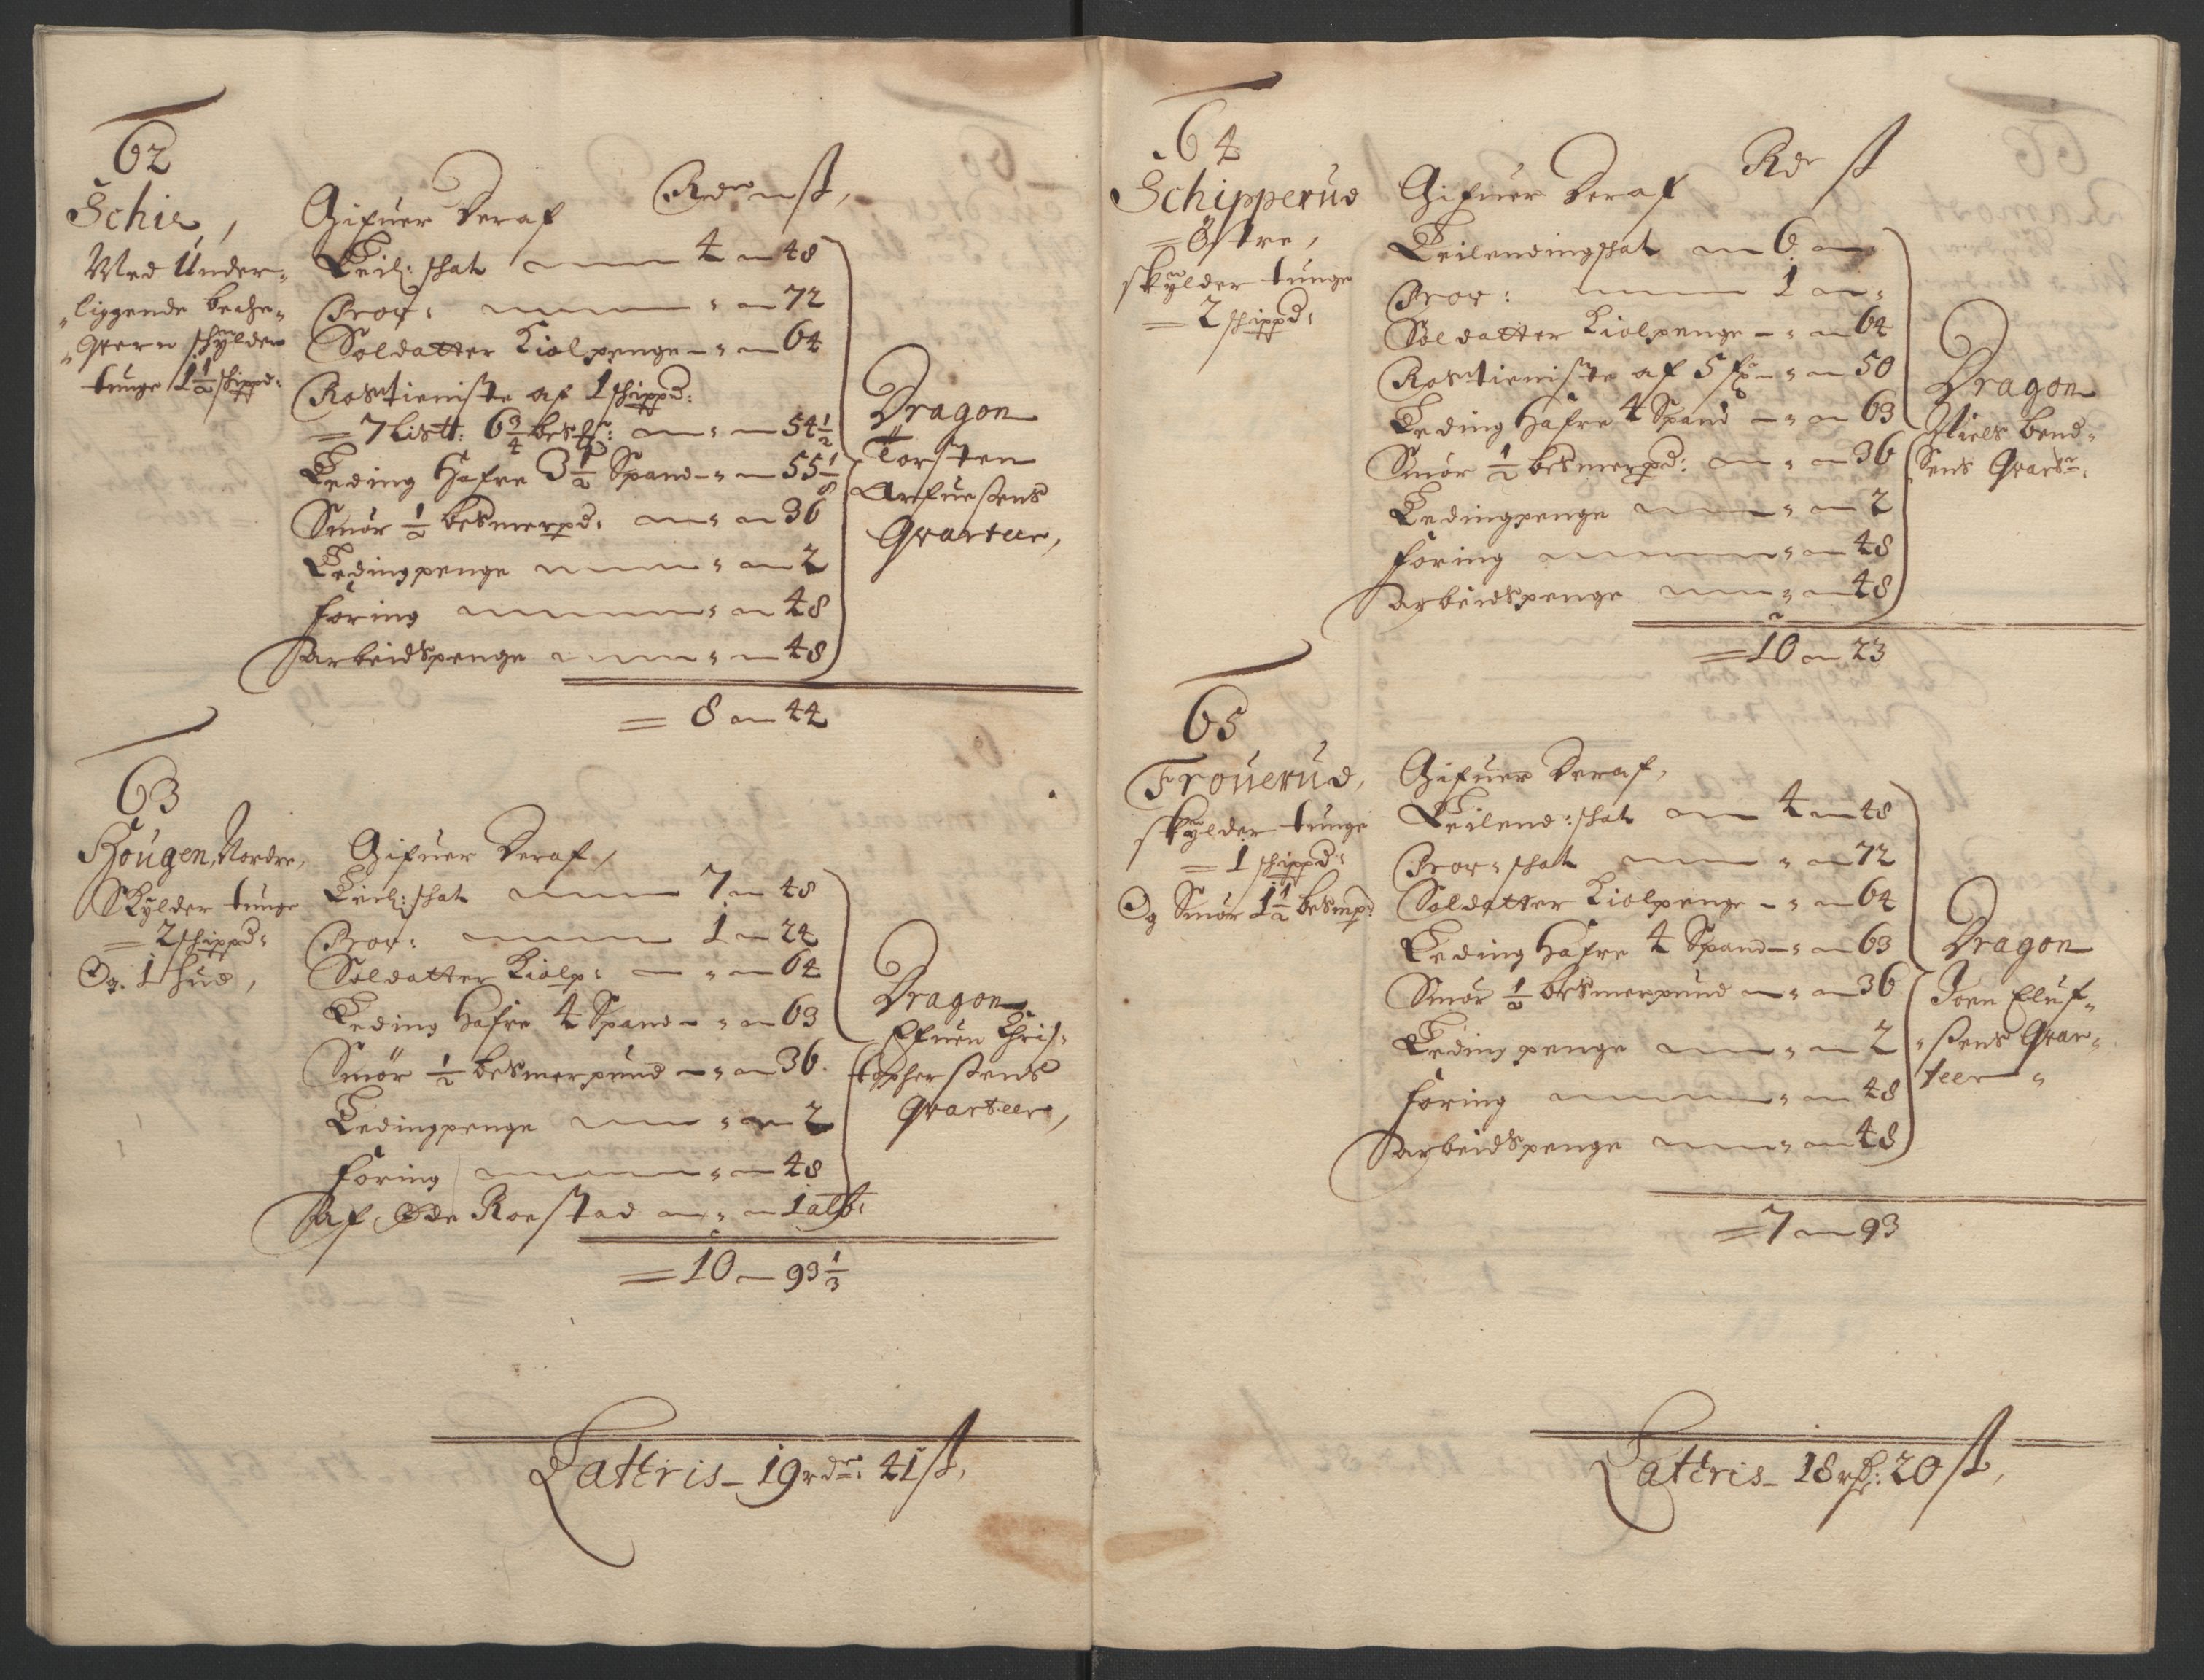 62
Schie,
Med Under-
liggende beche-
Qvern schylder
tunge 1 1/2 schippd:
Gifuer Deraf Rdr st,
Leil: schat 4 48
Prov: " 72
Soldatter Kiolpenge " 64
Rostieniste af 1 schippd:
7 List: 6 3/4 bes " 54 1/2
Leding Hafre 3 1/2 Spand " 55 1/8
Smør 1/2 besmerpd: " 36
Ledingpenge " 2
foring " 48
Arbeidspenge " 48
8 44
Dragon
Torsten
Arfuesens
Qvarteer,
63
Hougen, Nordre,
Skylder tunge
2 schippd:
Og 1 hud,
Gifuer Deraf,
Leil: schat 7 48
Prov: 1 24
Soldatter Kiolp: " 64
Leding Hafre 4 Spand " 63
Smør 1/2 besmerpund " 36
Ledingpenge " 2
foring " 48
Af Øde Roestad " 1 alb:
10 93 1/3
Dragon
Efuen Chris-
tophersens
Qvarteer,
Latteris 19 rdr: 41 st,
64
Schipperud
Østre,
skylder tunge
2 schippd:
Gifuer Deraf Rdr st
Leilendingschat 6 "
Prov: 1 "
Soldatter Kiolpenge " 64
Rostieniste af 5 " 50
Leding Hafre 4 Spand " 63
Smør 1/2 besmerpd: " 36
Ledingpenge " 2
foring " 48
Arbeidspenge " 48
10 23
Dragon
Niels Bend-
sens Qvartr:
65
Frouerud,
skylder tunge
1 schippd:
Og Smør 1 1/2 besmpd:
Gifuer Deraf,
Leilend: schat 4 48
Prov: schat " 72
Soldatter Kiolpenge " 64
Leding Hafre 4 Spand " 63
Smør 1/2 besmerpund " 36
Leding penge " 2
foring " 48
Arbeidspenge " 48
7 93
Dragon
Joen Eluf-
sens Qvar-
teer
Latteris 18 rdr: 20 st,